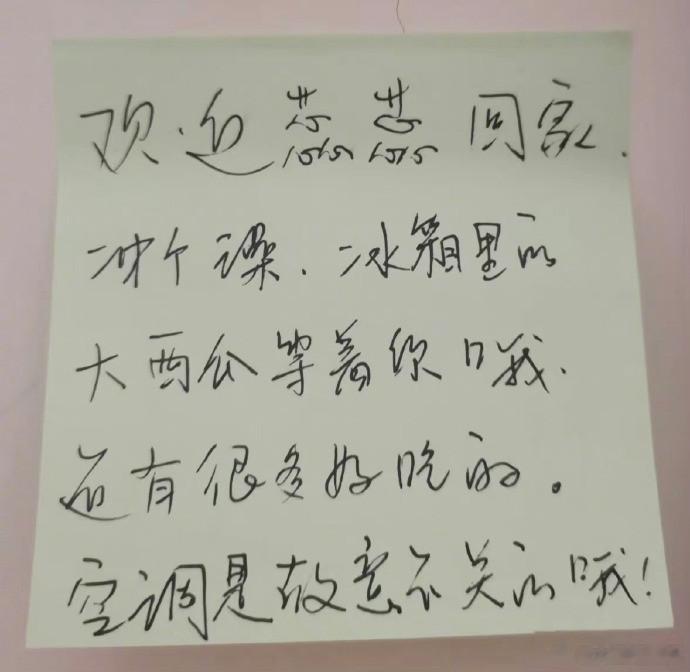 欢迎蕊蕊回家.
冲个澡.冰箱里的
大西瓜等着你哦.
还有很多好吃的。
空调是故意不关的哦!